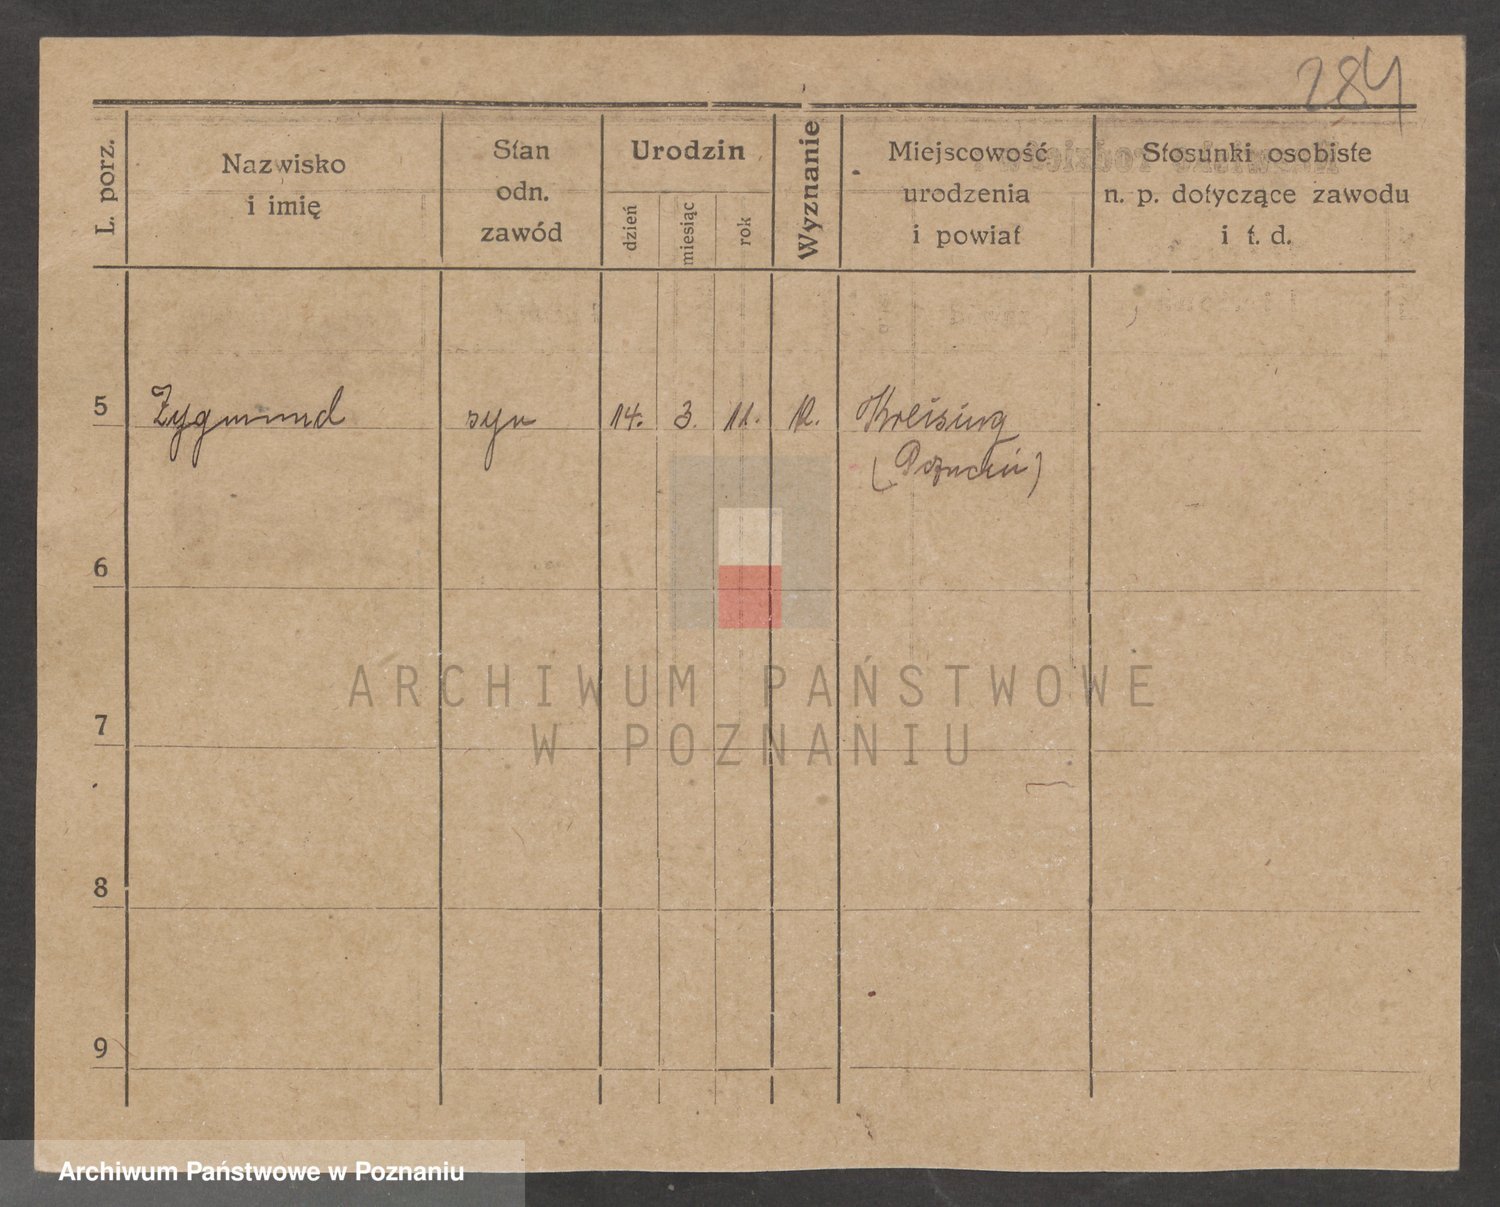 284
L. porz.
Nazwisko
i imię
Stan
odn.
zawód
Urodzin
dzień
miesiąc
rok
Wyznanie
Miejscowość
urodzenia
i powiat
Stosunki osobiste
n. p. dotyczące zawodu
i t. d.
5 Zygmund syn 14. 3. 11. Kreising
(Poznań)
6
7
8
9
ARCHIWUM PAŃSTWOWE
W POZNANIU
Archiwum Państwowe w Poznaniu